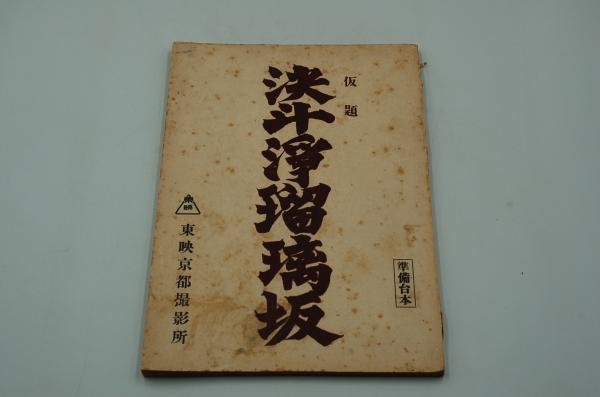 仮題
決斗浄瑠璃坂
準備台本
東映
東映京都撮影所